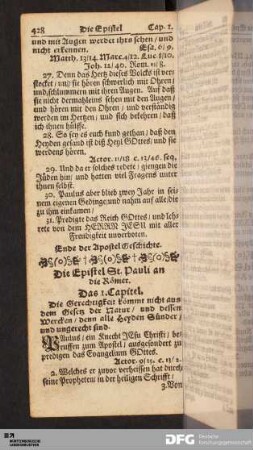 428 Die Epistel Cap. 1.
und mit Augen werdet ihrs sehen / und
nicht erkennen. Esa. 6/9.
Matth. 13/14. Marc. 4/12. Luc. 8/10.
Joh. 12/40. Rom. 11/8.
27. Denn das Hertz dieses Volcks ist ver-
stocket / und sie hören schwerlich mit Ohren /
und schlummen mit ihren Augen. Auf daß
sie nicht dermahleins sehen mit den Augen /
und hören mit den Ohren / und verständig
werden im Hertzen / und sich bekehren / daß
ich ihnen hülffe.
28. So sey es euch kund gethan / daß den
Heyden gesand ist diß Heyl GOttes / und sie
werdens hören.
Actor. 11/18 c. 13/46. seq.
29. Und da er solches redete / giengen die
Jüden hin / und hatten viel Fragens unter
ihnen selbst.
30. Paulus aber blieb zwey Jahr in sei-
nem eigenen Gedinge / und nahm auf alle die
zu ihm einkamen /
31. Predigte das Reich GOttes / und leh-
rete von dem HERRN JESU mit aller
Freudigkeit unverboten.
Ende der Apostel Geschichte.
Die Epistel St. Pauli an
die Römer.
Das 1. Capitel.
Die Gerechtigkeit kömmt nicht aus
dem Gesetz der Natur / und dessen
Wercken / denn alle Heyden Sünder /
und ungerecht sind.
PAulus / ein Knecht JEsu Christi / be-
ruffen zum Apostel / ausgesondert zu
predigen das Evangelium GOttes.
Actor. 9/15. c. 13/2.
2. Welches er zuvor verheissen hat durch
seine Propheten / in der heiligen Schrifft.
3. Von
DFG Deutsche
Forschungsgemeinschaft